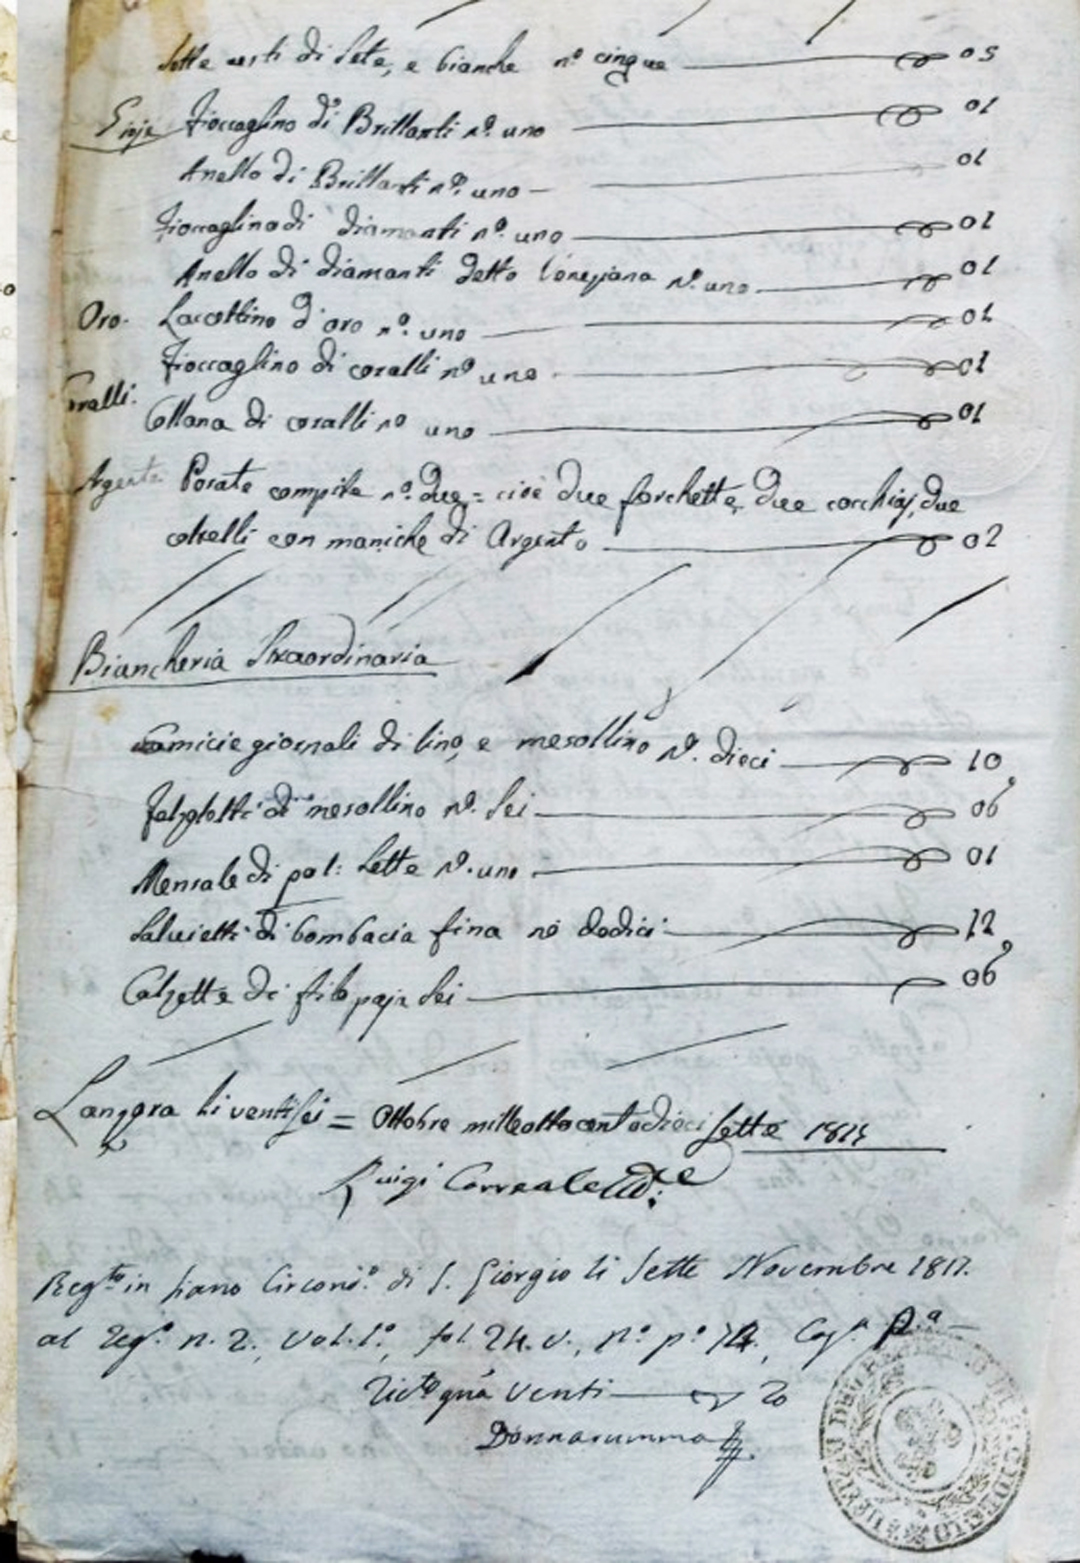 Sotto vesti di Seta, e bianche n.º cinque 05
Gioje Fioccaglino di Brillanti nº. uno 01
Anello di Brillanti nº. uno — 01
Fioccaglino di diamanti nº. uno 01
Anello di diamanti detto Veneziana nº. uno 01
Oro. Laccettino d'oro nº. uno 01
Fioccaglino di coralli nº uno 01
Coralli.
Collana di coralli nº uno 01
Argento Posate compite nº. due = cioè due forchette, due cocchiaj, due
coltelli con maniche di Argento 02
Biancheria Straordinaria
Camicie giornali di lino, e mesollino nº. dieci 10
Falzoletti di mesollino nº. Sei 06
Mensale di pal: Sette nº. uno 01
Salvietti di bombacia fina nº dodici 12
Calzette di filo paja Sei 06
Lanzara li ventisei = Ottobre milleottocentodieci Sette 1817
Luigi Correale
Regto in Siano Circonº. di S. Giorgio li Sette Novembre 1817.
al Regº. n. 2., vol. 1º., fol. 24. v., nº. pº. 74.,
Ricto gna venti 20
Donnarumma